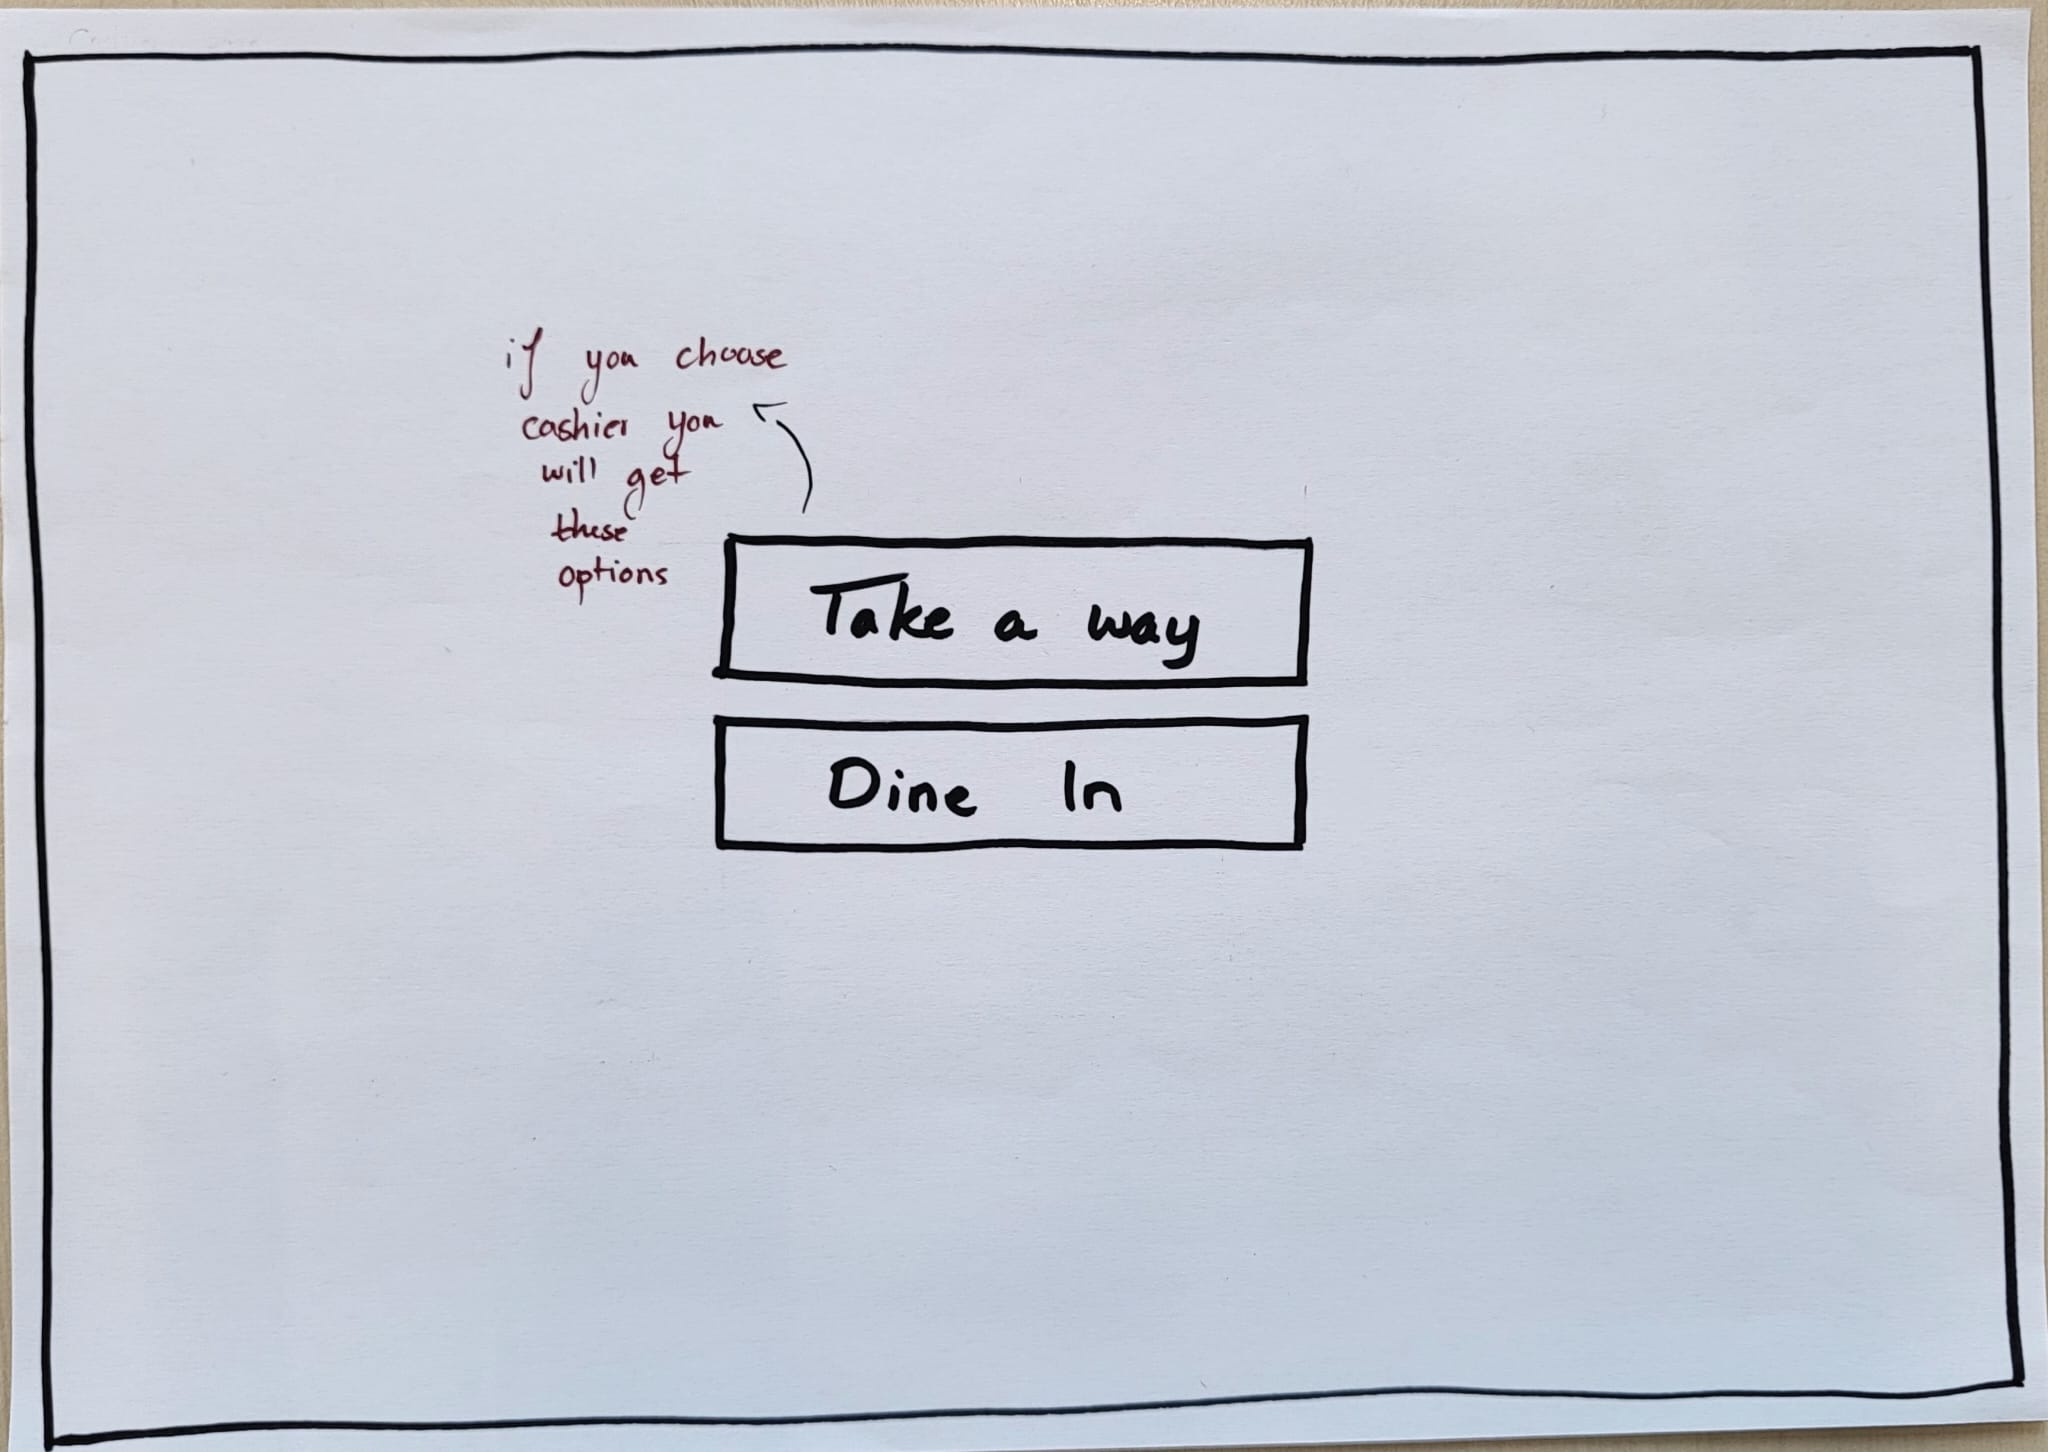 if you choose
cashier you
will get
these
options
Take a way
Dine In